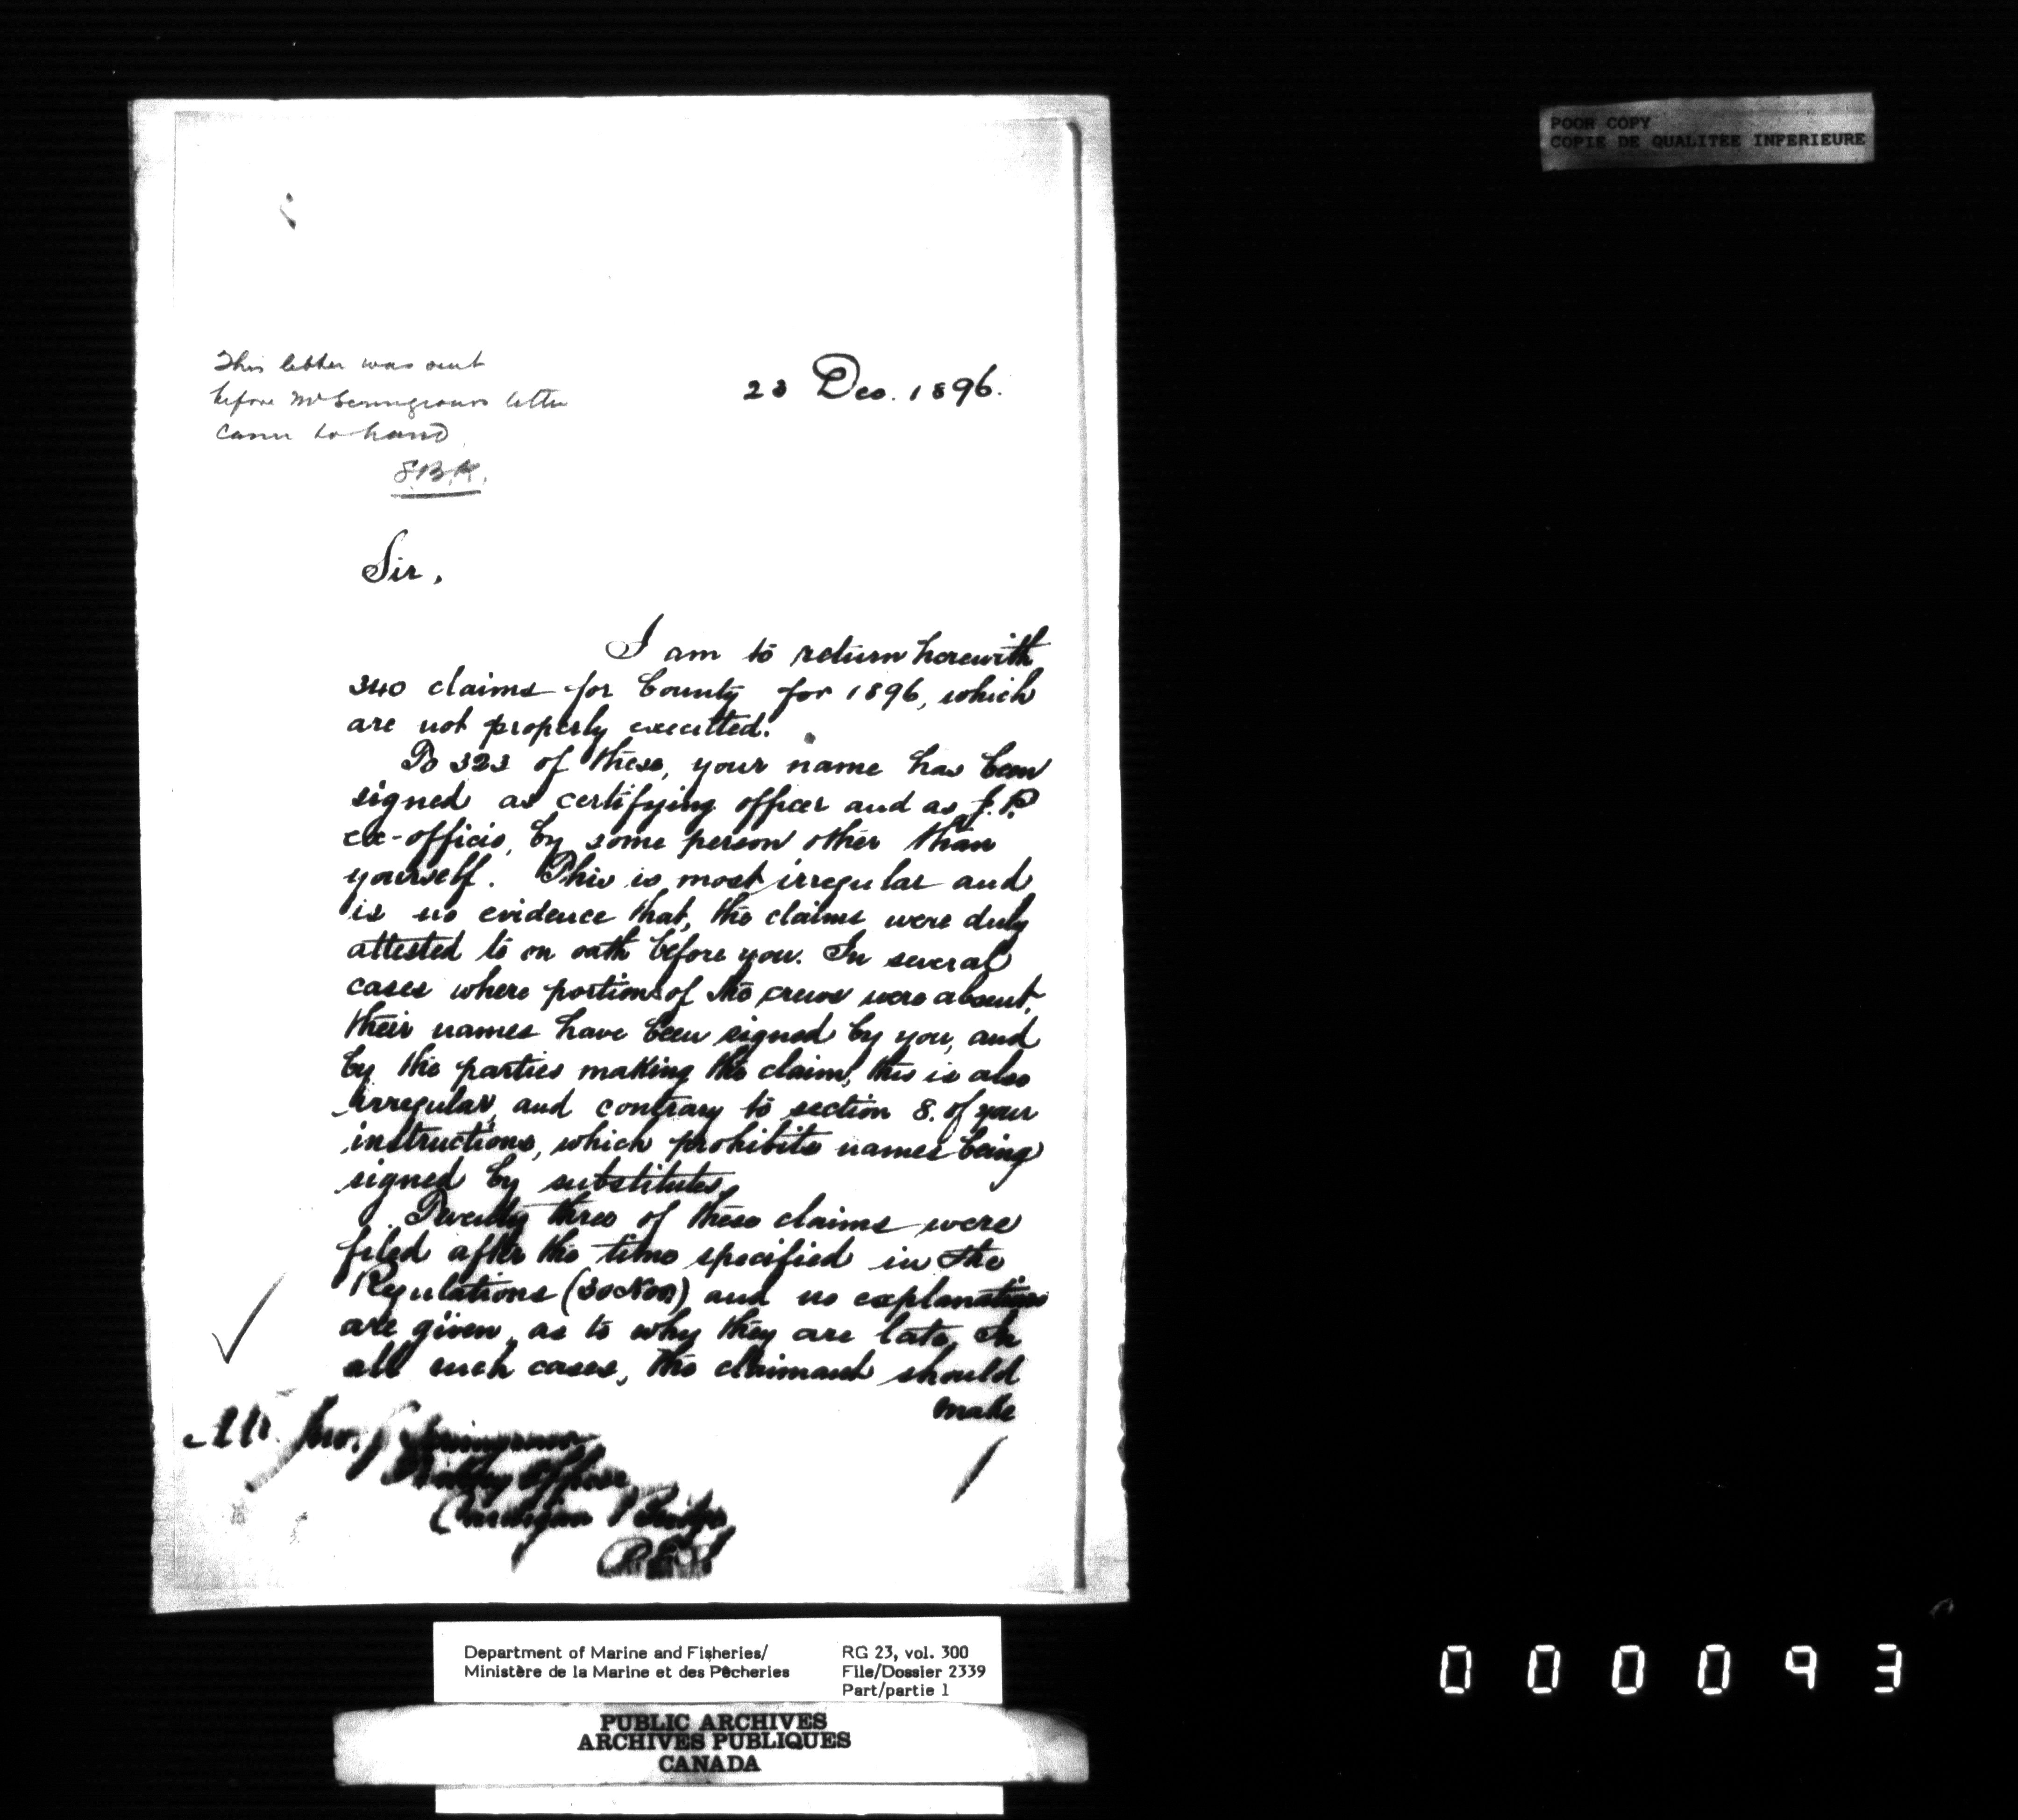 POOR COPY
COPIE DE QUALITEE INFERIEURE
This letter was sent
before Mr letter
came to hand
S.B.K.
23 Dec. 1896.
Sir,
I am to return herewith
340 claims for Bounty for 1896, which
are not properly executed.
To 323 of these, your name has been
signed as certifying officer and as J.P.
ex-officio, by some person other than
yourself. This is most irregular and
is no evidence that, the claims were duly
attested to on oath before you. In several
cases where portions of the crews were absent,
their names have been signed by you, and
by the parties making the claim, this is also
irregular, and contrary to section 8. of your
instructions, which prohibits names being
signed by substitutes.
Twenty three of these claims were
filed after the time specified in the
Regulations (30 Nov) and no explanations
are given, as to why they are late. In
all such cases, the claimant should
make
Mr. Jno.
Fishery Officer
Cardigan Bridge
P.E.I.
Department of Marine and Fisheries/
Ministère de la Marine et des Pêcheries
RG 23, vol. 300
File/Dossier 2339
Part/partie 1
PUBLIC ARCHIVES
ARCHIVES PUBLIQUES
CANADA
000093